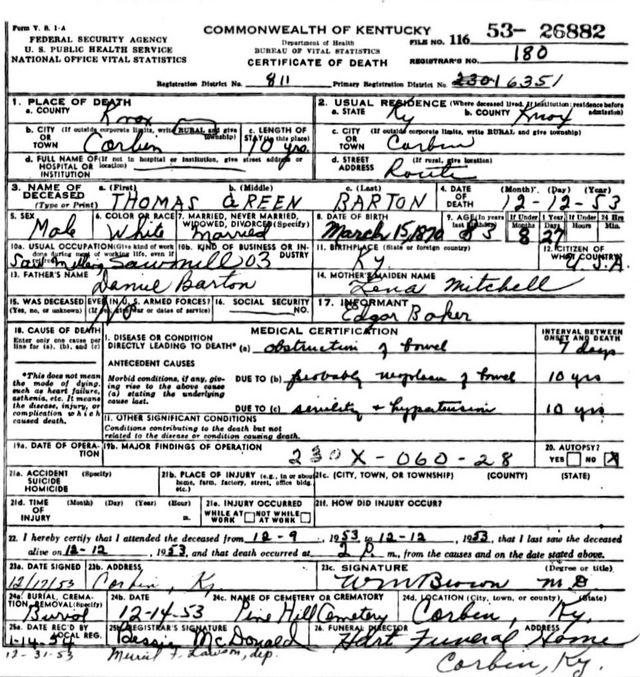 Form V. S. 1-A
COMMONWEALTH OF KENTUCKY
FILE NO. 116 53- 26882
FEDERAL SECURITY AGENCY
U. S. PUBLIC HEALTH SERVICE
NATIONAL OFFICE VITAL STATISTICS
Department of Health
BUREAU OF VITAL STATISTICS
CERTIFICATE OF DEATH
REGISTRAR'S NO. 180
Registration District No. 811 Primary Registration District No. 2301 6351
1. PLACE OF DEATH
a. COUNTY Knox
2. USUAL RESIDENCE (Where deceased lived. If institution: residence before admission)
a. STATE Ky b. COUNTY Knox
b. CITY (If outside corporate limits, write RURAL and give township) OR TOWN Corbin
c. LENGTH OF STAY (in this place) 70 yrs.
c. CITY (If outside corporate limits, write RURAL and give township) OR TOWN Corbin
d. FULL NAME OF (If not in hospital or institution, give street address or location) HOSPITAL OR INSTITUTION
d. STREET ADDRESS (If rural, give location) Route
3. NAME OF DECEASED (Type or Print) a. (First) THOMAS b. (Middle) GREEN c. (Last) BARTON
4. DATE OF DEATH (Month) (Day) (Year) 12-12-53
5. SEX Male
6. COLOR OR RACE White
7. MARRIED, NEVER MARRIED, WIDOWED, DIVORCED (Specify) Married
8. DATE OF BIRTH March 15, 1870
9. AGE (In years last birthday) If Under 1 Year 8 27 If Under 24 Hrs. Hours Min.
10a. USUAL OCCUPATION (Give kind of work done during most of working life, even if retired)
10b. KIND OF BUSINESS OR INDUSTRY Sawmill 03
11. BIRTHPLACE (State or foreign country) Ky.
12. CITIZEN OF WHAT COUNTRY? U.S.A.
13. FATHER'S NAME Daniel Barton
14. MOTHER'S MAIDEN NAME Lena Mitchell
15. WAS DECEASED EVER IN U. S. ARMED FORCES? (Yes, no, or unknown) (If yes, give war or dates of service) No
16. SOCIAL SECURITY NO.
17. INFORMANT Edgar Baker
18. CAUSE OF DEATH
Enter only one cause per line for (a), (b), and (c)
MEDICAL CERTIFICATION
INTERVAL BETWEEN ONSET AND DEATH
I. DISEASE OR CONDITION DIRECTLY LEADING TO DEATH* (a) obstruction of bowel 7 days
*This does not mean the mode of dying, such as heart failure, asthenia, etc. It means the disease, injury, or complication which caused death.
ANTECEDENT CAUSES
Morbid conditions, if any, giving rise to the above cause (a) stating the underlying cause last.
DUE TO (b) probably neoplasm of bowel 10 yrs
DUE TO (c) senility & hypertension 10 yrs
II. OTHER SIGNIFICANT CONDITIONS
Conditions contributing to the death but not related to the disease or condition causing death.
19a. DATE OF OPERATION
19b. MAJOR FINDINGS OF OPERATION
230X-060-28
20. AUTOPSY? YES NO X
21a. ACCIDENT SUICIDE HOMICIDE (Specify)
21b. PLACE OF INJURY (e.g., in or about home, farm, factory, street, office bldg. etc.)
21c. (CITY, TOWN, OR TOWNSHIP) (COUNTY) (STATE)
21d. TIME OF INJURY (Month) (Day) (Year) (Hour) m.
21e. INJURY OCCURRED WHILE AT WORK NOT WHILE AT WORK
21f. HOW DID INJURY OCCUR?
22. I hereby certify that I attended the deceased from 12-9, 1953 to 12-12, 1953, that I last saw the deceased
alive on 12-12, 1953, and that death occurred at 2 P m., from the causes and on the date stated above.
23a. DATE SIGNED 12/17/53
23b. ADDRESS Corbin, Ky.
23c. SIGNATURE (Degree or title) Wm Brown M D
24a. BURIAL, CREMATION, REMOVAL (Specify) Burial
24b. DATE 12-14-53
24c. NAME OF CEMETERY OR CREMATORY Pine Hill Cemetery
24d. LOCATION (City, town, or county) (State) Corbin, Ky.
25a. DATE REC'D BY LOCAL REG. 1-14-54
25b. REGISTRAR'S SIGNATURE Bessie McDonald
26. FUNERAL DIRECTOR ADDRESS Hart Funeral Home
12-31-53 Merriel F. Lawson, dep.
Corbin, Ky.